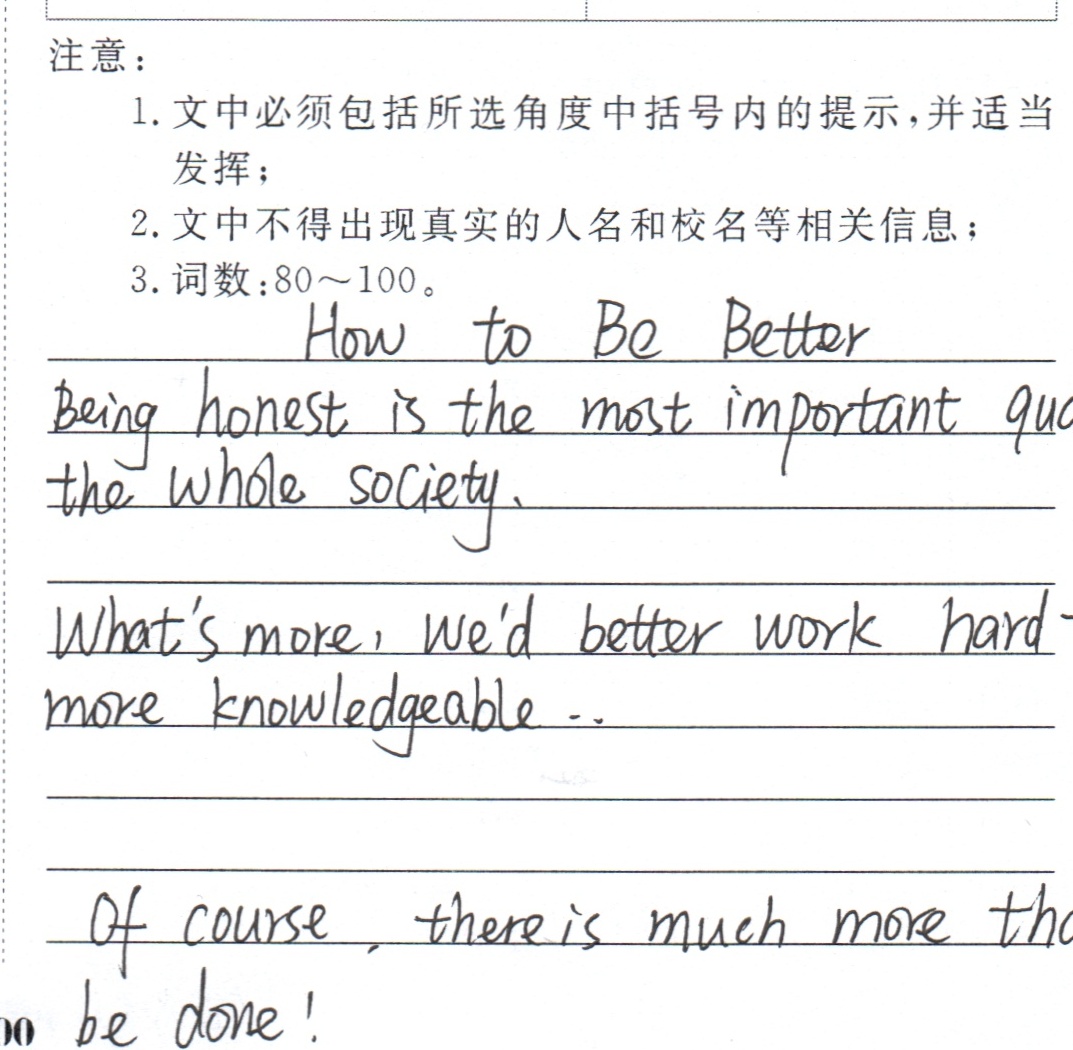 注意：
1. 文中必须包括所选角度中括号内的提示，并适当
发挥；
2. 文中不得出现真实的人名和校名等相关信息；
3. 词数：80～100。
How to Be Better
Being honest is the most important
the whole society.
What's more, we'd better work hard
more knowledgeable ..
Of course, there is much more
be done!